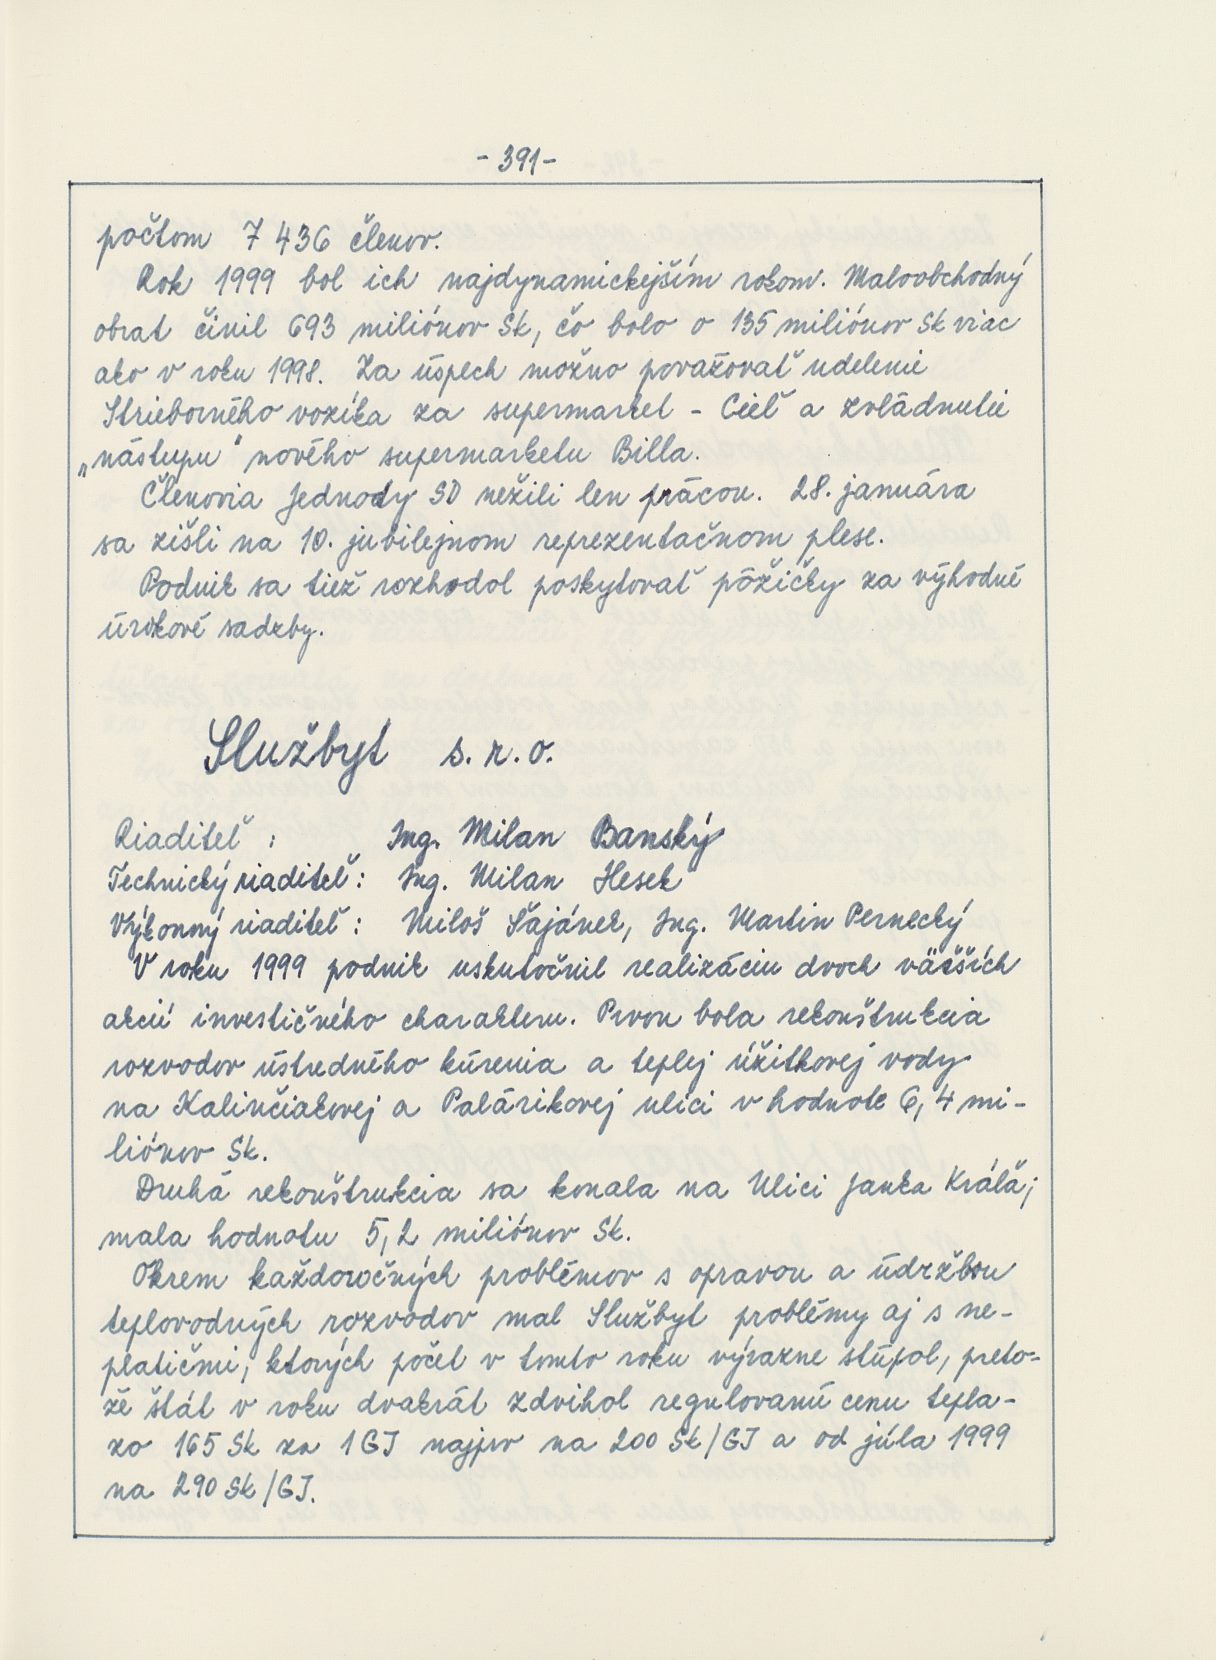 - 391 -
počtom 7 436 členov.
Rok 1999 bol ich najdynamickejším rokom. Maloobchodný
obrat činil 693 miliónov Sk, čo bolo o 135 miliónov Sk viac
ako v roku 1998. Za úspech možno považovať udelenie
Strieborného vozíka za supermarket - Cieľ a zvládnutie
„nástupu“ nového supermarketu Billa.
Členovia Jednody SD nežili len prácou. 28. januára
sa zišli na 10. jubilejnom reprezentačnom plese.
Podnik sa tiež rozhodol poskytovať pôžičky za výhodné
úrokové sadzby.
Službyt s. r. o.
Riaditeľ : Ing. Milan Banský
Technický riaditeľ : Ing. Milan Hesek
Výkonný riaditeľ : Miloš Šajánek, Ing. Martin Pernecký
V roku 1999 podnik uskutočnil realizáciu dvoch väčších
akcií investičného charakteru. Prvou bola rekonštrukcia
rozvodov ústredného kúrenia a teplej úžitkovej vody
na Kalinčiakovej a Palárikovej ulici v hodnote 6,4 mi-
liónov Sk.
Druhá rekonštrukcia sa konala na Ulici Janka Kráľa;
mala hodnotu 5,2 miliónov Sk.
Okrem každoročných problémov s opravou a údržbou
teplovodných rozvodov mal Službyt problémy aj s ne-
platičmi, ktorých počet v tomto roku výrazne stúpol, preto-
že štát v roku dvakrát zdvihol regulovanú cenu tepla-
zo 165 Sk za 1 GJ najprv na 200 Sk/GJ a od júla 1999
na 290 Sk/GJ.